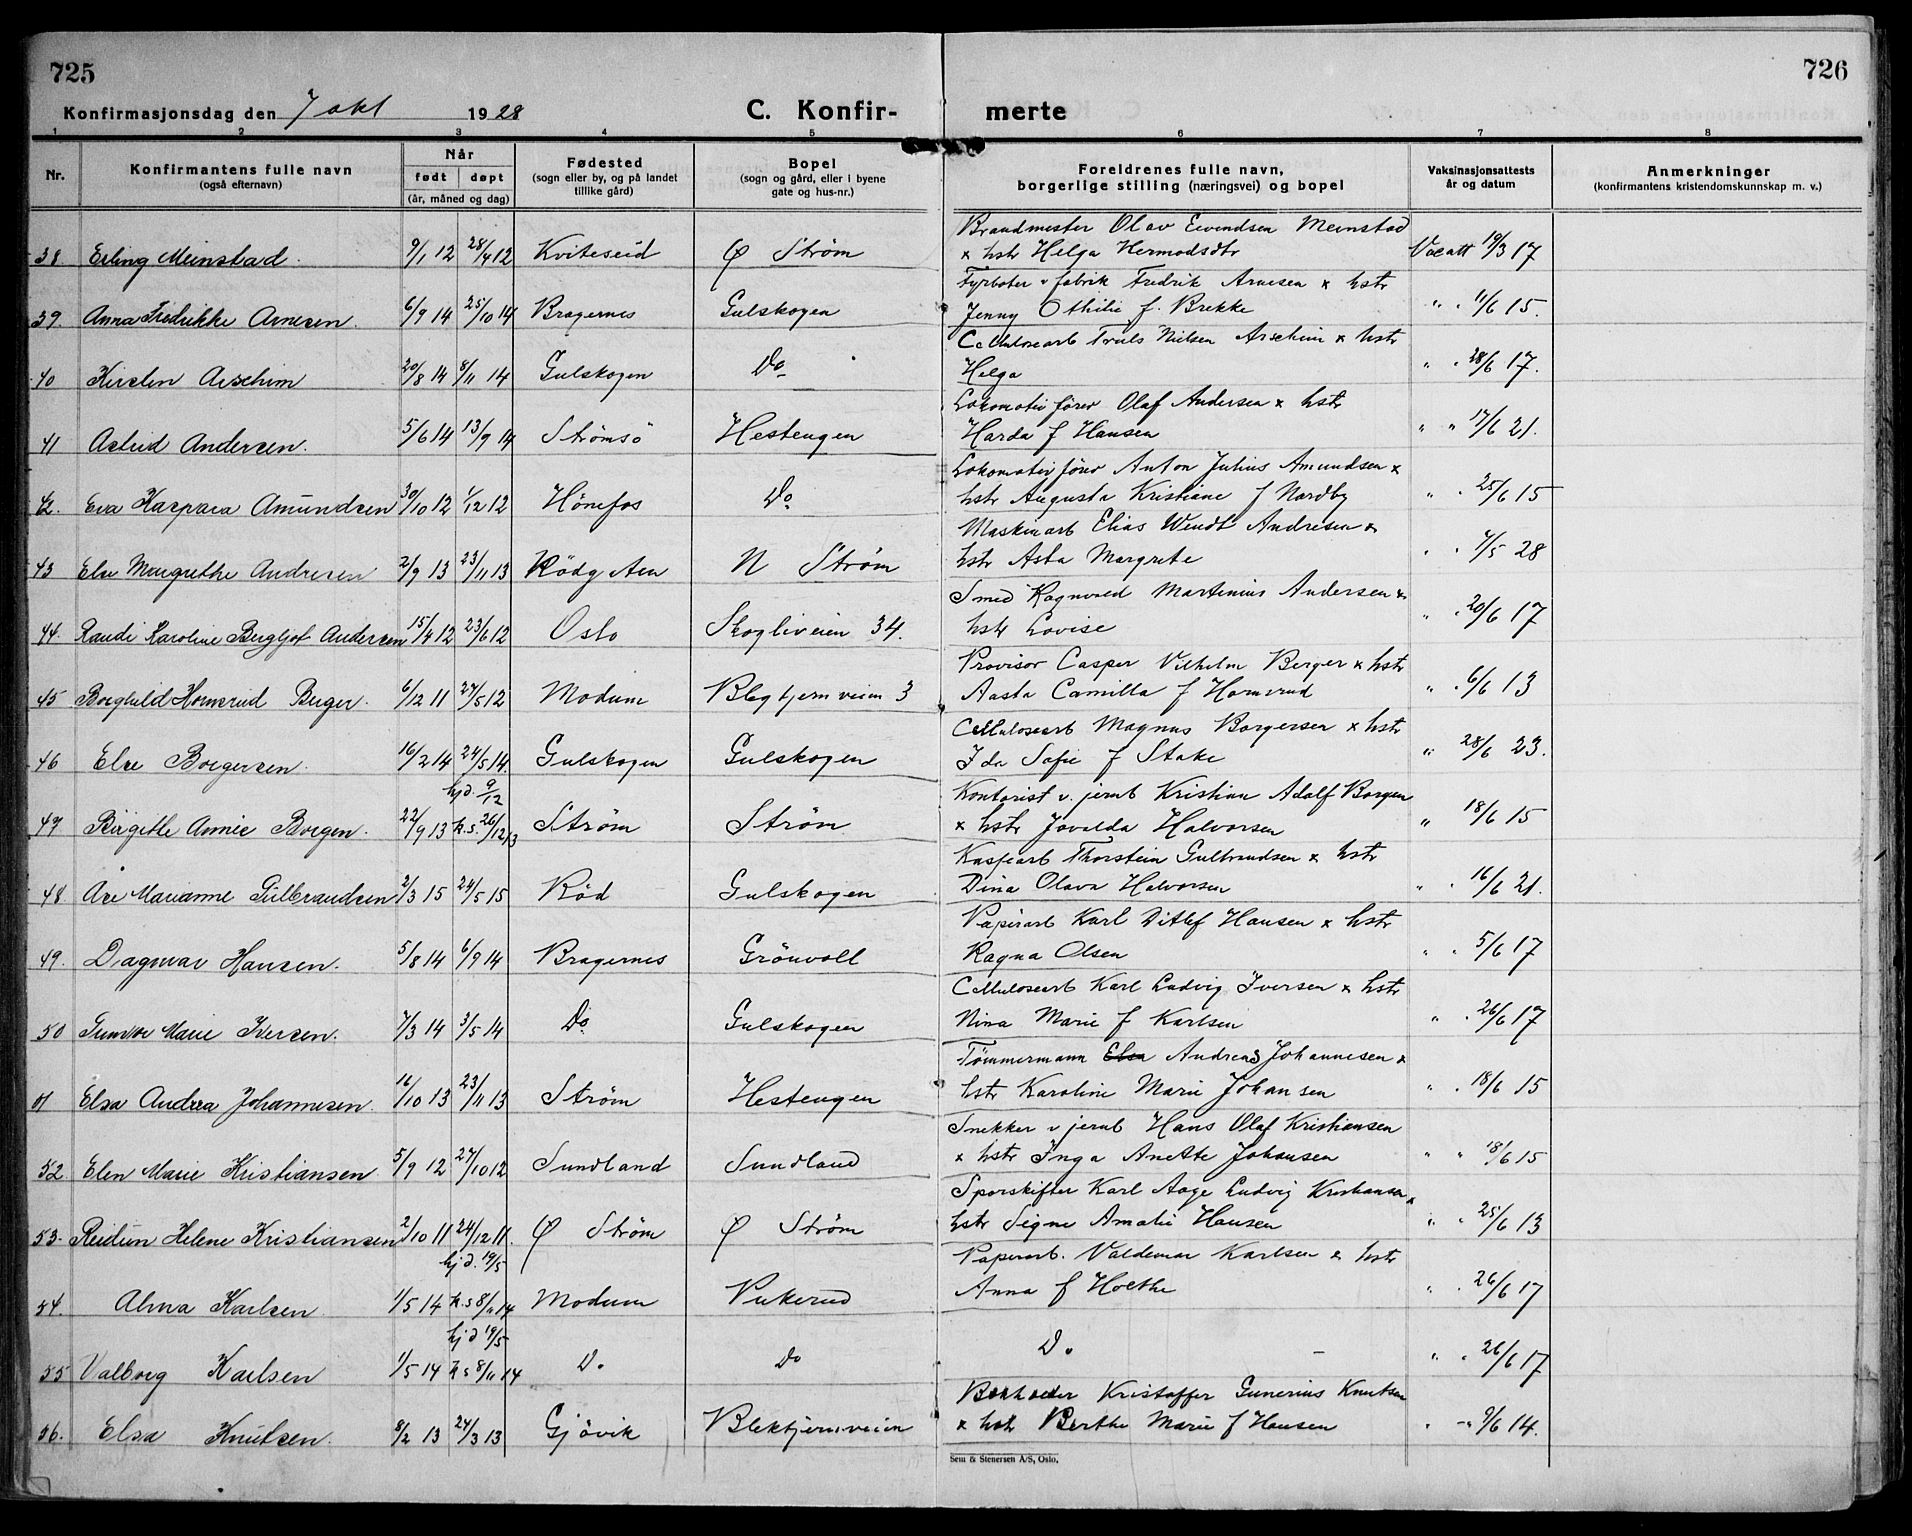 725
726
Konfirmasjonsdag den 7 okt 1928
C. Konfir-
merte
1 2 3 4 5 6 7 8
Nr.
Konfirmantens fulle navn
(også efternavn)
Når
født døpt
(år, måned og dag)
Fødested
(sogn eller by, og på landet
tillike gård)
Bopel
(sogn og gård, eller i byene
gate og hus-nr.)
Foreldrenes fulle navn,
borgerlige stilling (næringsvei) og bopel
Vaksinasjonsattests
år og datum
Anmerkninger
(konfirmantens kristendomskunnskap m. v.)
Brandmester Olav Eivendsen Meinstad
38 Erling Meinstad. 9/1 12 28/4 12 Kviteseid Ø Strøm x hstr Helga Hermodsdtr Vacatt 19/3 17
Fyrbøter v fabrik Fredrik Arnesen x hstr
39. Anna Fredrikke Arnesen. 6/9 14 25/10 14 Bragernes Gulskogen Jenny Othilie f. Brekke " " 11/6 15.
Cellulosearb Truls Nielsen Aischim x hstr
40 Kirsten Aischim 20/8 14 8/11 14 Gulskogen Do Helga " " 28/6 17.
Lokomotivfører Olaf Andersen x hstr
41 Astrid Andersen. 5/6 14 13/9 14 Strømsö Hestengen Harda f Hansen " " 17/6 21.
Lokomotivförer Anton Julius Amundsen x
42. Eva Kaspara Amundsen 30/10 12 1/12 12 Hönefos Do hstr Augusta Kristiane f Nordby " " 25/6 15
Maskinarb Elias Wendt Andresen x
43 Else Margrethe Andresen 2/9 13 23/11 13 Rödg ten N Strøm hstr Asta Margrete " " 4/5 28
Smed Ragnvald Martinius Andersen x
44. Randi Karoline Bergljot Andersen 15/4 12 23/6 12 Oslo Skogliveien 34. hstr Lovise " " 20/6 17
Provisor Casper Vilhelm Berger x hstr
45 Borghild Hornsrud Berger. 6/12 11 27/5 12 Modum Blegtjernveien 3 Aasta Camilla f Hornsrud " " 6/6 13
Cellulosearb Magnus Borgersen x hstr
46 Else Borgersen. 16/2 14 24/5 14. Gulskogen Gulskogen Ida Sofie f Stake " 28/6 23.
hjd. 9/12 Kontorist v. jernb Kristian Adolf Borgen
47 Birgithe Annie Borgen. 22/9 13 k.s. 26/12 13 Strøm Strøm x hstr Jovalda Halvorsen " 18/6 15
Kasfearb Thorstein Gulbrandsen x hstr
48 Åse Marianne Gulbrandsen 2/3 15 24/5 15 Röd Gulskogen Dina Olava Halvorsen " " 16/6 21.
Papirarb Karl Ditlef Hansen x hstr
49. Dagmar Hansen. 5/8 14 6/9 14 Bragernes Grönvoll Ragna Olsen " " 5/6 17
Cellulosearb Karl Ludvig Iversen x hstr
50 Marie Iversen. 7/3 14 3/5 14 Do. Gulskogen Nina Marie f Karlsen " " 26/6 17
Tømmermann Elsa Andreas Johannesen x
51 Elsa Andrea Johannesen. 16/10 13 23/11 13 Strøm Hestengen hstr Karoline Marie Johansen " " 18/6 15
Snekker v jernb Hans Olaf Kristiansen
52. Elen Marie Kristiansen 5/9 12 27/10 12 Sundland Sundland x hstr Inga Anette Johansen " " 18/6 15
Sporskifter Karl Aage Ludvig Kristiansen x
53. Reidun Helene Kristiansen 2/10 11 24/12 11. Ø Strøm Ø Strøm hstr Signe Amalie Hansen " " 25/6 13
hjd. 19/5 Papirarb. Valdemar Karlsen x hstr
54. Alma Karlsen 1/5 14 k.s 8/11 14 Modum Vukerud Anna f Holthe " " 26/6 17
hjd 19/5
55 Valborg Karlsen 1/5 14 k s 8/11 14 Do Do Do — " " 26/6 17
Kristoffer Gunerius Knutsen
56. Elsa Knutsen. 8/2 13 24/3 13 Gjövik Blektjernveien x hstr Berthe Marie f Hansen " -"- 9/6 14.
Sem & Stenersen A/S, Oslo.